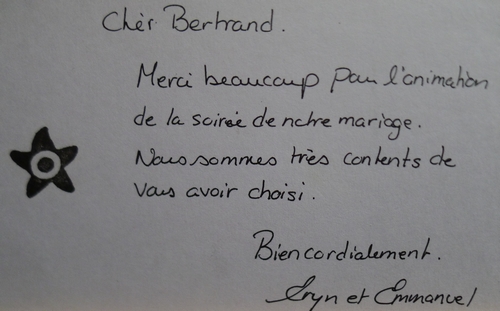 Chèr Bertrand.
Merci beaucoup pour l'animation
de la soirée de notre mariage.
Nous sommes très contents de
vous avoir choisi.
Bien cordialement.
et Emmanuel